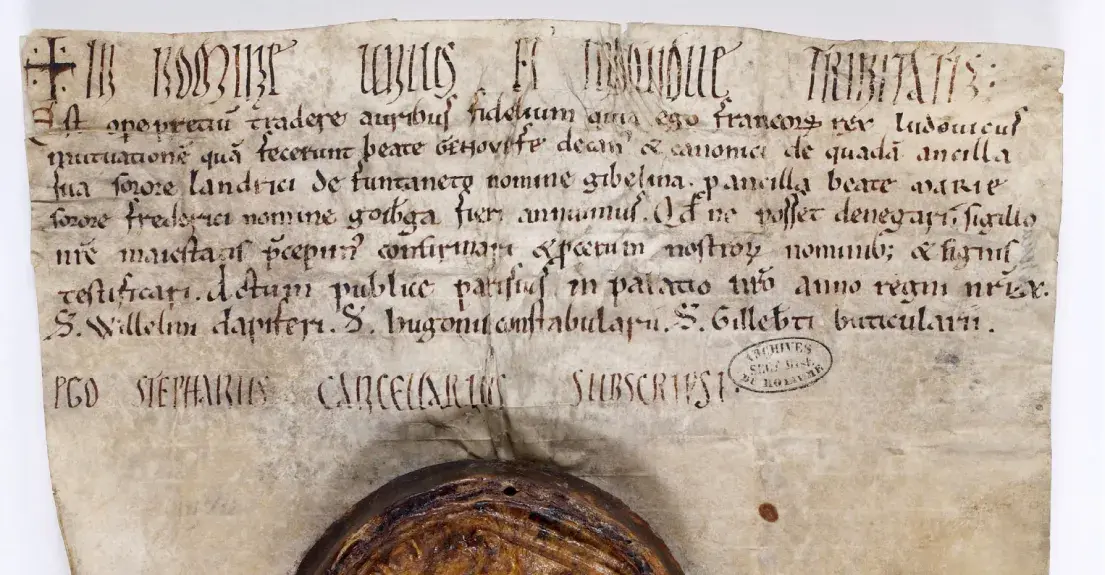 IN NOMINE UNIUS ET INDIVIDUE TRINITATIS:
Est operepreciũ tradere auribus fidelium quia ego francorꝝ rex ludovicus
mutuationẽ quã fecerunt beate Genovefe decan' & canonici de quadã ancilla
sua sorore landrici de funtaneto nomine gibelina. p ancilla beate marie
sorore frederici nomine goib̃ga fieri annuimus. Qd̃ ne posset denegari, sigillo
nr̃e maiestatis p̃cepim' confirmari & p̃cerum nostrorꝝ nominib; & signis
testificari. Actum publice parisius in palatio nr̃o anno regni nr̃i x.
S. Willelmi dapiferi. S. hugonis constabularii. S. Gilleb̃ti buticularii.
EGO STEPHANUS CANCELLARIUS SUBSCRIPSI.
ARCHIVES
DU ROYAUME